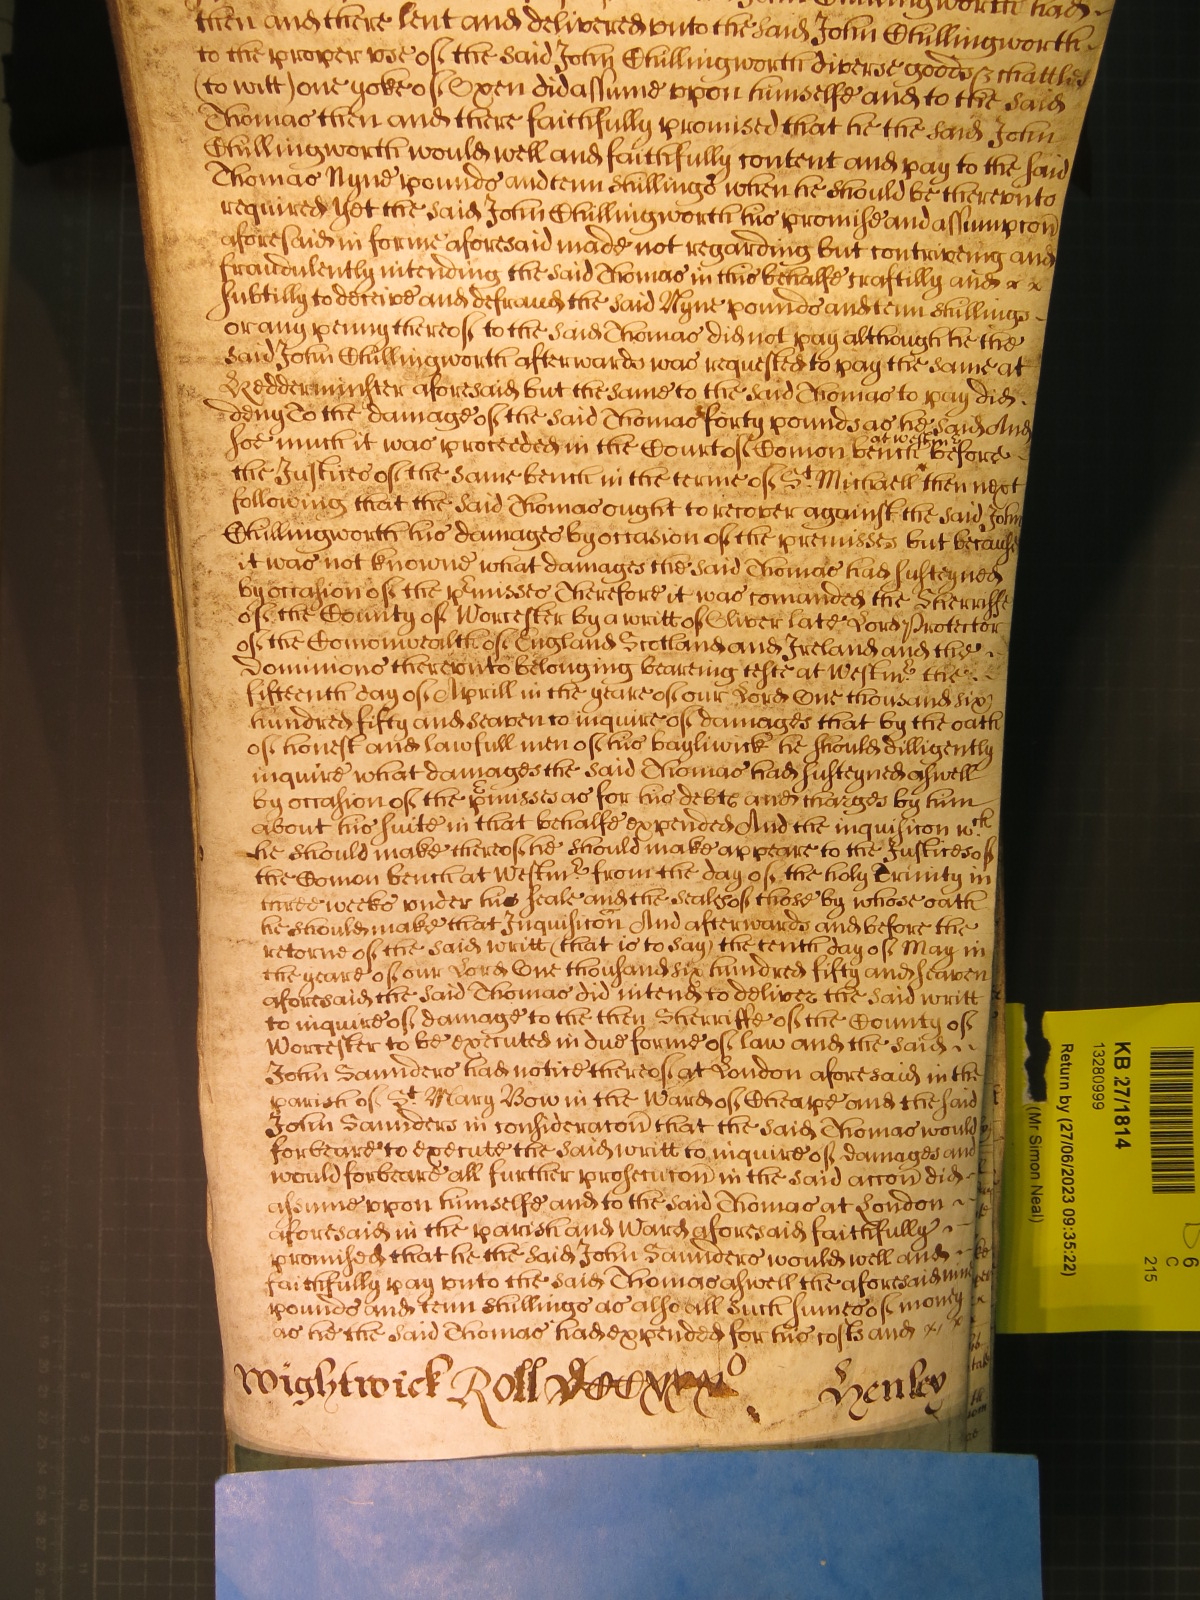 then and there lent and delivered vnto the said John Chillingworth
to the proper vse of the said John Chillingworth diverse goods & chattles
(to witt) one yoke of Oxen did assume vpon himselfe and to the said
Thomas then and there faithfully promised that he the said John
Chillingworth would well and faithfully content and pay to the said
Thomas Nyne pounds and tenn shillings when he should be therevnto
required Yet the said John Chillingworth his promise and assumpcon
aforesaid in forme aforesaid made not regarding but contriveing and
fraudulently intending the said Thomas in this behalfe craftilly and x x
subtilly to deceive and defraud the said Nyne pounds and tenn shillings
or any penny thereof to the said Thomas did not pay although he the
said John Chillingworth afterwards was requested to pay the same at
Kedderminster aforesaid but the same to the said Thomas to pay did
deny To the damage of the said Thomas forty pounds as he said And
soe much it was proceeded in the Court of Comon bench at Westmr before
the Justices of the same bench in the terme of St Michaell then next
following that the said Thomas ought to recover against the said John
Chillingworth his damages by occasion of the premisses but because
it was not knowne what damages the said Thomas had susteyned
by occasion of the pmisses Therefore it was comanded the Sherriffe
of the County of Worcester by a writt of Oliver late Lord Protector
of the Comonwealth of England Scotland and Ireland and the
Dominions therevnto belonging beareing teste at Westmr the
fifteenth day of Aprill in the yeare of our Lord One thousand six
hundred fifty and seaven to inquire of damages that by the oath
of honest and lawfull men of his bayliwick he should dilligently
inquire what damages the said Thomas had susteyned aswell
by occasion of the pmisses as for his debts and charges by him
about his suite in that behalfe expended And the inquisicon wch
he should make thereof he should make appeare to the Justices of
the Comon bench at Westmr from the day of the holy Trinity in
three weeks vnder his seale and the seales of those by whose oath
he should make that Inquisicon And afterwards and before the
retorne of the said writt (that is to say) the tenth day of May in
the yeare of our Lord One thousand six hundred fifty and seaven
aforesaid the said Thomas did intend to deliver the said writt
to inquire of damage to the then Sherriffe of the County of
Worcester to be executed in due forme of law and the said
John Saunders had notice thereof at London aforesaid in the
parish of St Mary Bow in the Ward of Cheape and the said
John Saunders in consideracon that the said Thomas would
forbeare to execute the said writt to inquire of damages and
would forbeare all further prosecucon in the said accon did
assume vpon himselfe and to the said Thomas at London
aforesaid in the parish and Ward aforesaid faithfully
promised that he the said John Saunders would well and
faithfully pay vnto the said Thomas aswell the aforesaid nine
pounds and tenn shillings as also all such sumes of money
as he the said Thomas had expended for his costs and x x
Wightwick Roll Henley
KB 27/1814
13280999
Return by (27/06/2023 09:35:22)
(Mr Simon Neal)
C
215